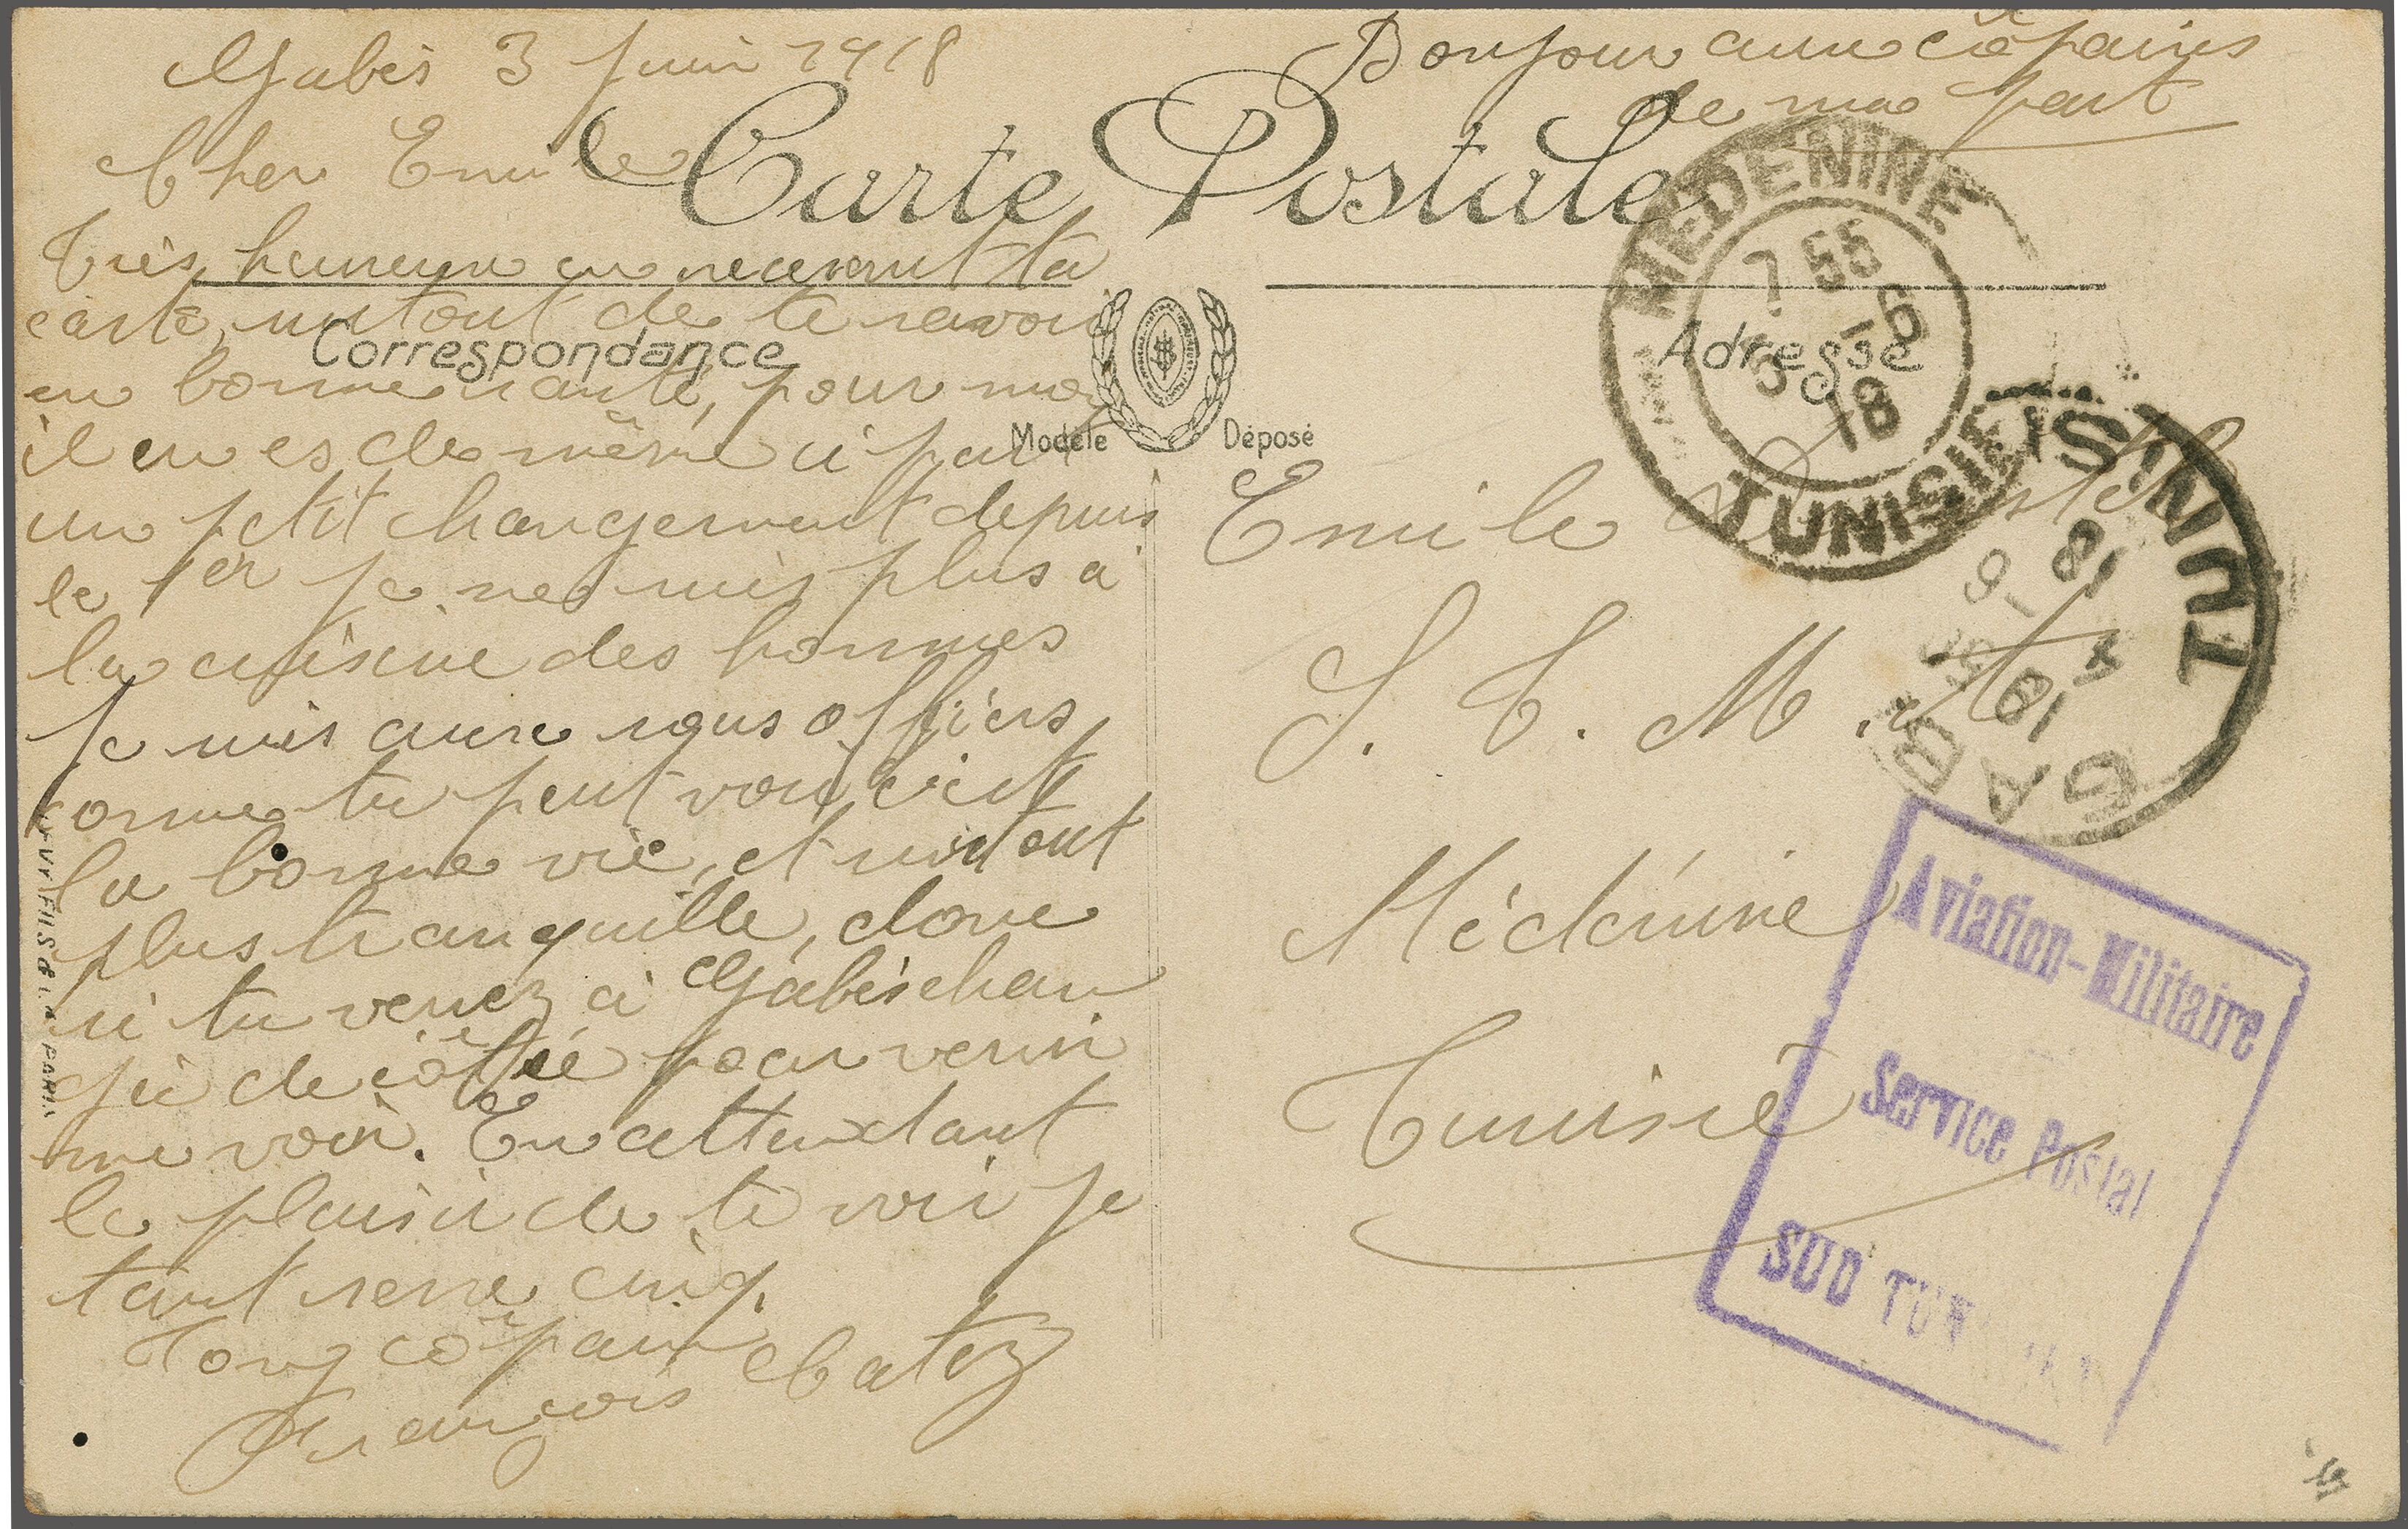 Gabès 3 juin 1918
Bonjour aux cōpains
de ma part
Carte Postale
Cher Emile
Très heureux en recevant ta
carte, surtout de te savoir
Correspondance
en bonne santé, pour moi
il en es de même ici part
un petit changement depuis
le 1er je ne suis plus à
la cuisine des hommes
Je suis aux sous offiers
comme tu peut voir c'est
la bonne vie, et surtout
plus tranquille, donc
si tu venez à Gabès
de côtée pour venir
me voir. En attendant
le plaisir de te voir je
serre cinq.
Ton cōpain
François Catez
Modèle Déposé
Adresse
Emile
S. T. M.
Médénine
Tunisie
MEDENINE
7 55
5 -6
18
TUNISIE
GAB
TUNISI
10
5 -6
18
Aviation-Militaire
Service Postal
SUD TUN
FILS & PARIS